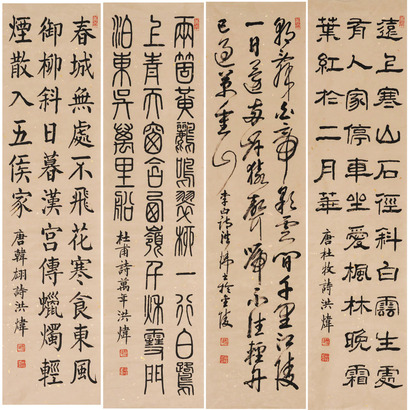 遠上寒山石徑斜白雲生處
有人家停車坐愛楓林晚霜
葉紅於二月華
唐杜牧詩洪煒
朝辭白帝彩雲間千里江陵
一日還兩岸猿聲啼不住輕舟
已過萬重山
李白詩洪煒書於金陵
兩箇黃鸝鳴翠柳一行白鷺
上青天窗含西嶺千秋雪門
泊東吳萬里船
杜甫詩萬年洪煒
春城無處不飛花寒食東風
御柳斜日暮漢宮傳蠟燭輕
煙散入五侯家
唐韓翃詩洪煒